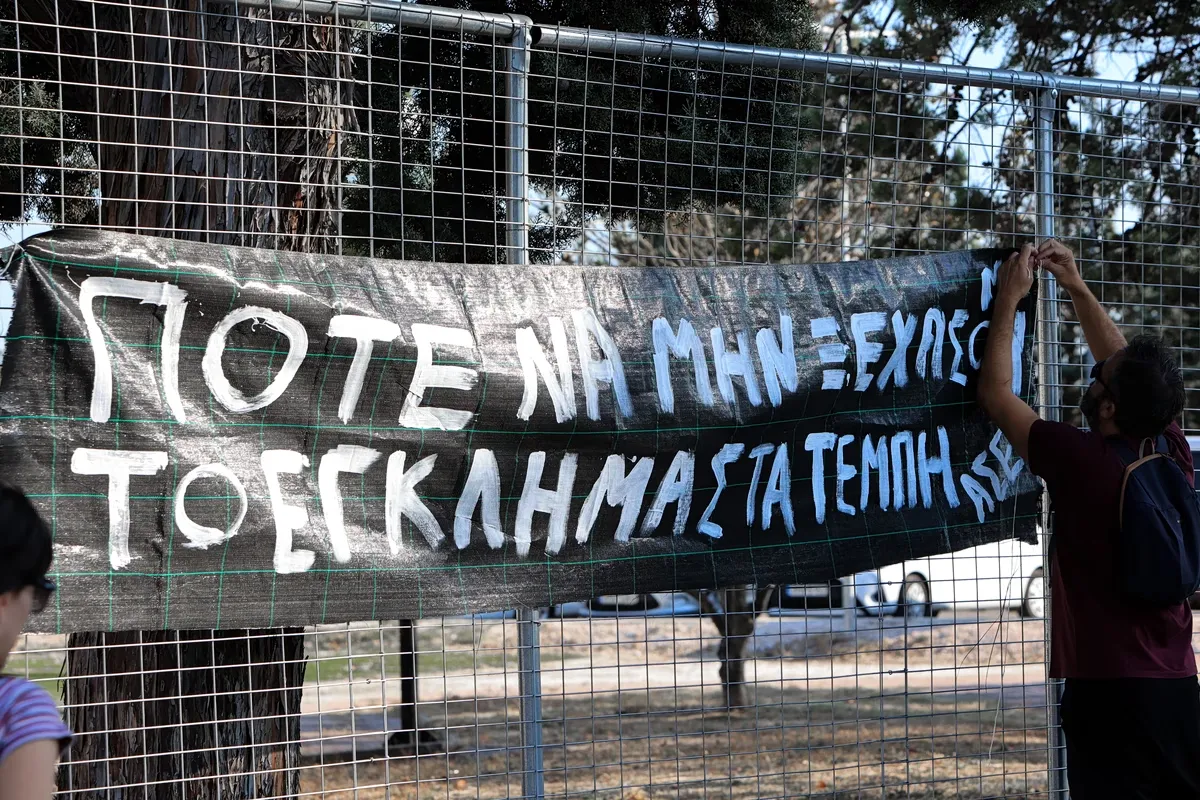 ΠΟΤΕ ΝΑ ΜΗΝ ΞΕΧΑΣΟΥΜ
ΤΟ ΕΓΚΛΗΜΑ ΣΤΑ ΤΕΜΠΗ